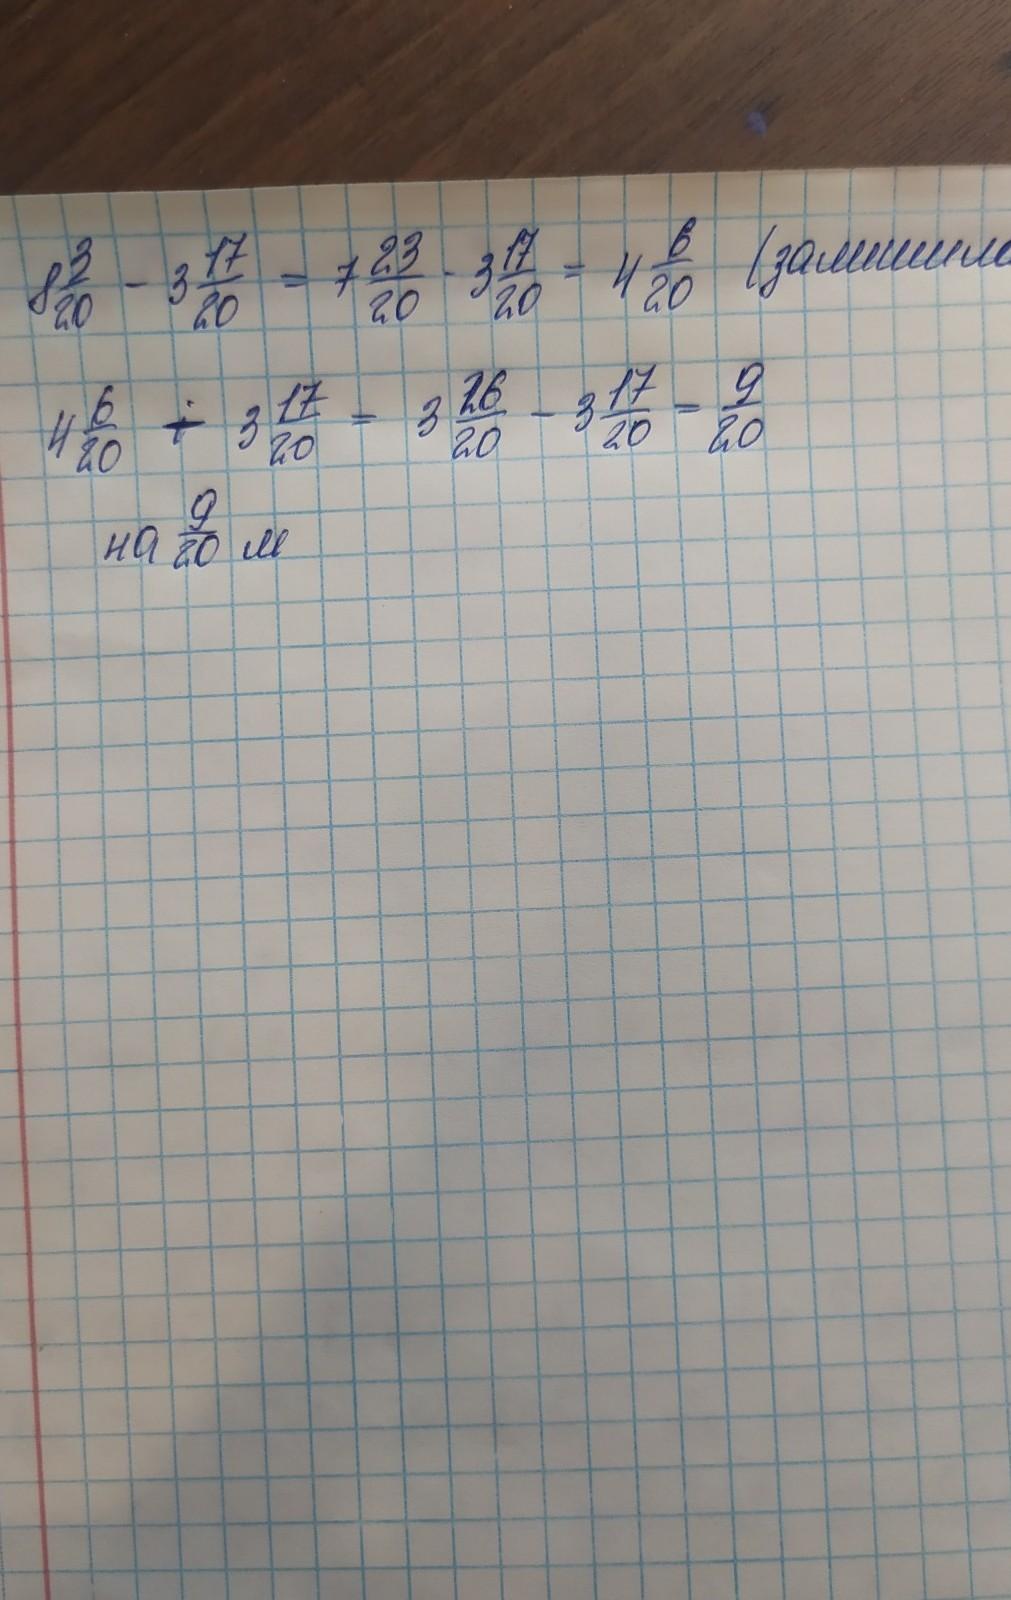 8 3/20 - 3 17/20 = 7 23/20 - 3 17/20 = 4 6/20 (залишило
4 6/20 - 3 17/20 = 3 26/20 - 3 17/20 = 9/20
на 9/20 м